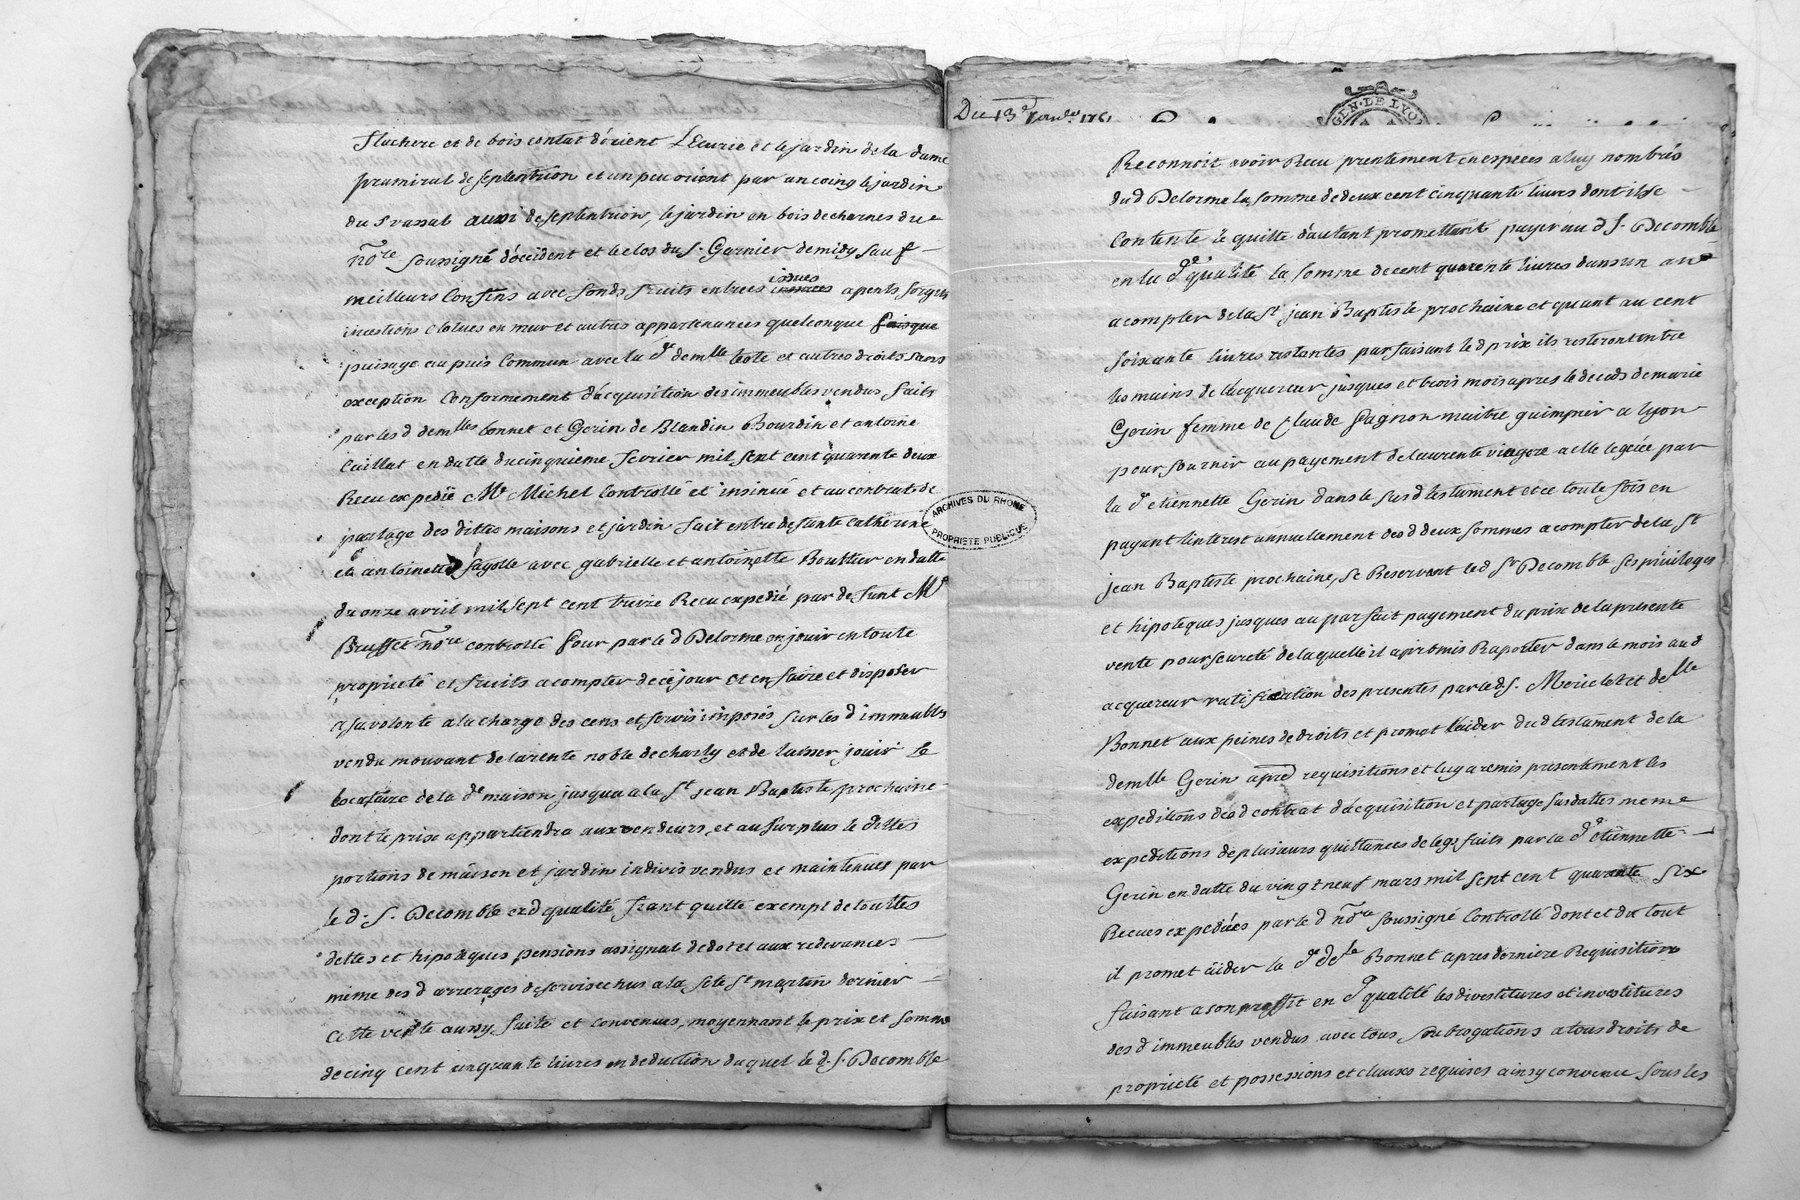 fluchere et de bois contat d'orient L'Ecurie et le jardin de la dame
pramiral de septentrion et un peu orient par un coing le jardin
du s.r assat aussi de septentrion, le jardin en bois de charnes du
no.re soussigné d'occident et le clos du s. Garnier de midy sauf
meilleurs Confins avec fonds fruits entrées issues apents forgets
incestions Colues en mur et autres appartenances quelconque
puisage au puis Commun avec la d.e dem.lle teste et autres droits sans
exception Conformement d'acquisition des immeubles vendus faits
par les d dem.lles bonnet et Gerin de Blandin Bourdin et antoine
Caillat en datte du cinquieme fevrier mil sept cent quarente deux
Recu expedié M.e Michel Controllé et insinué et au contrat de
partage des dittes maisons et jardin fait entre defunte Catherine
et antoinette fayolle avec gabrielle et antoinette Bouttier en datte
du onze avril mil sept cent treize Recu expedié par defunt M.e
Brusset no.re controllé pour par le d Delorme en jouir en toute
proprieté et fruits a compter de ce jour et en faire et disposer
a sa volonte a la charge des cens et servis imposés sur les d immeubles
vendu mouvant de la rente noble de charly et de laisser jouir le
locataire de la d.e maison jusqua a la S.t jean Baptiste prochaine
dont le prix appartiendra aux vendeurs, et au surplus le dittes
portions de maison et jardin indivis vendus et maintenues par
le d. S. Decomble esd qualité franc quitte exempt de touttes
dettes et hipoteques pensions assignat de dot et aux redevances
même des d arrerages de servis echus a la fete S.t martin dernier
Cette vente aussy faite et convenue, moyennant le prix et somme
de cinq cent cinquante livres en deduction duquel le d. S. Decomble
Du 13.e janv.er 1761
GEN. DE LYON
ARCHIVES DU RHONE
PROPRIETE PUBLIQUE
Reconnoit avoir Recu prentement en especes a luy nombrés
du d Delorme la somme de deux cent cinquante livres dont il se
Contente le quitte d'autant promettant payer au d S. Decomble
en la d.e qualité la somme de cent quarente livres dans un an
a compter de la S.t jean Baptiste prochaine et quant au cent
soixante livres restantes parfaisant le d prix ils resteront entre
les mains de l'acquereur jusques et trois mois apres le deces de marie
Gerin femme de Claude Pagnon maitre guimpier a lyon
pour fournir au payement de la rente viagere a elle leguée par
la d.e etiennette Gerin dans le susd testament et ce toute fois en
payant l'interest annuellement des d deux sommes a compter de la S.t
jean Baptiste prochaine, se Reservant led S.r Decomble ses privileges
et hipoteques jusques au parfait payement du prix de la presente
vente pour sureté de laquelle il a promis Raporter dans le mois au d
acquereur ratification des presentes par le d S. Mericlet et de.lle
Bonnet aux peines de droits et promet l'aider du d testament de la
demlle Gerin apres requisitions et luy a remis presentement les
expeditions des d contrat d'acquisition et partage susdattes meme
expeditions de plusieurs quittances de legs faits par la d.e etiennette
Gerin en datte du vingt neuf mars mil sept cent quarante six
Recues expediées par le d no.re soussigné Controllé dont et du tout
il promet aider la d.e de.lle Bonnet apres derniere Requisition
faisant a son proffit en d.e qualité les divestitures et investitures
des d immeubles vendus avec tous subrogations a tous droits de
proprieté et possessions et clauses requises ainsy convenu sous les